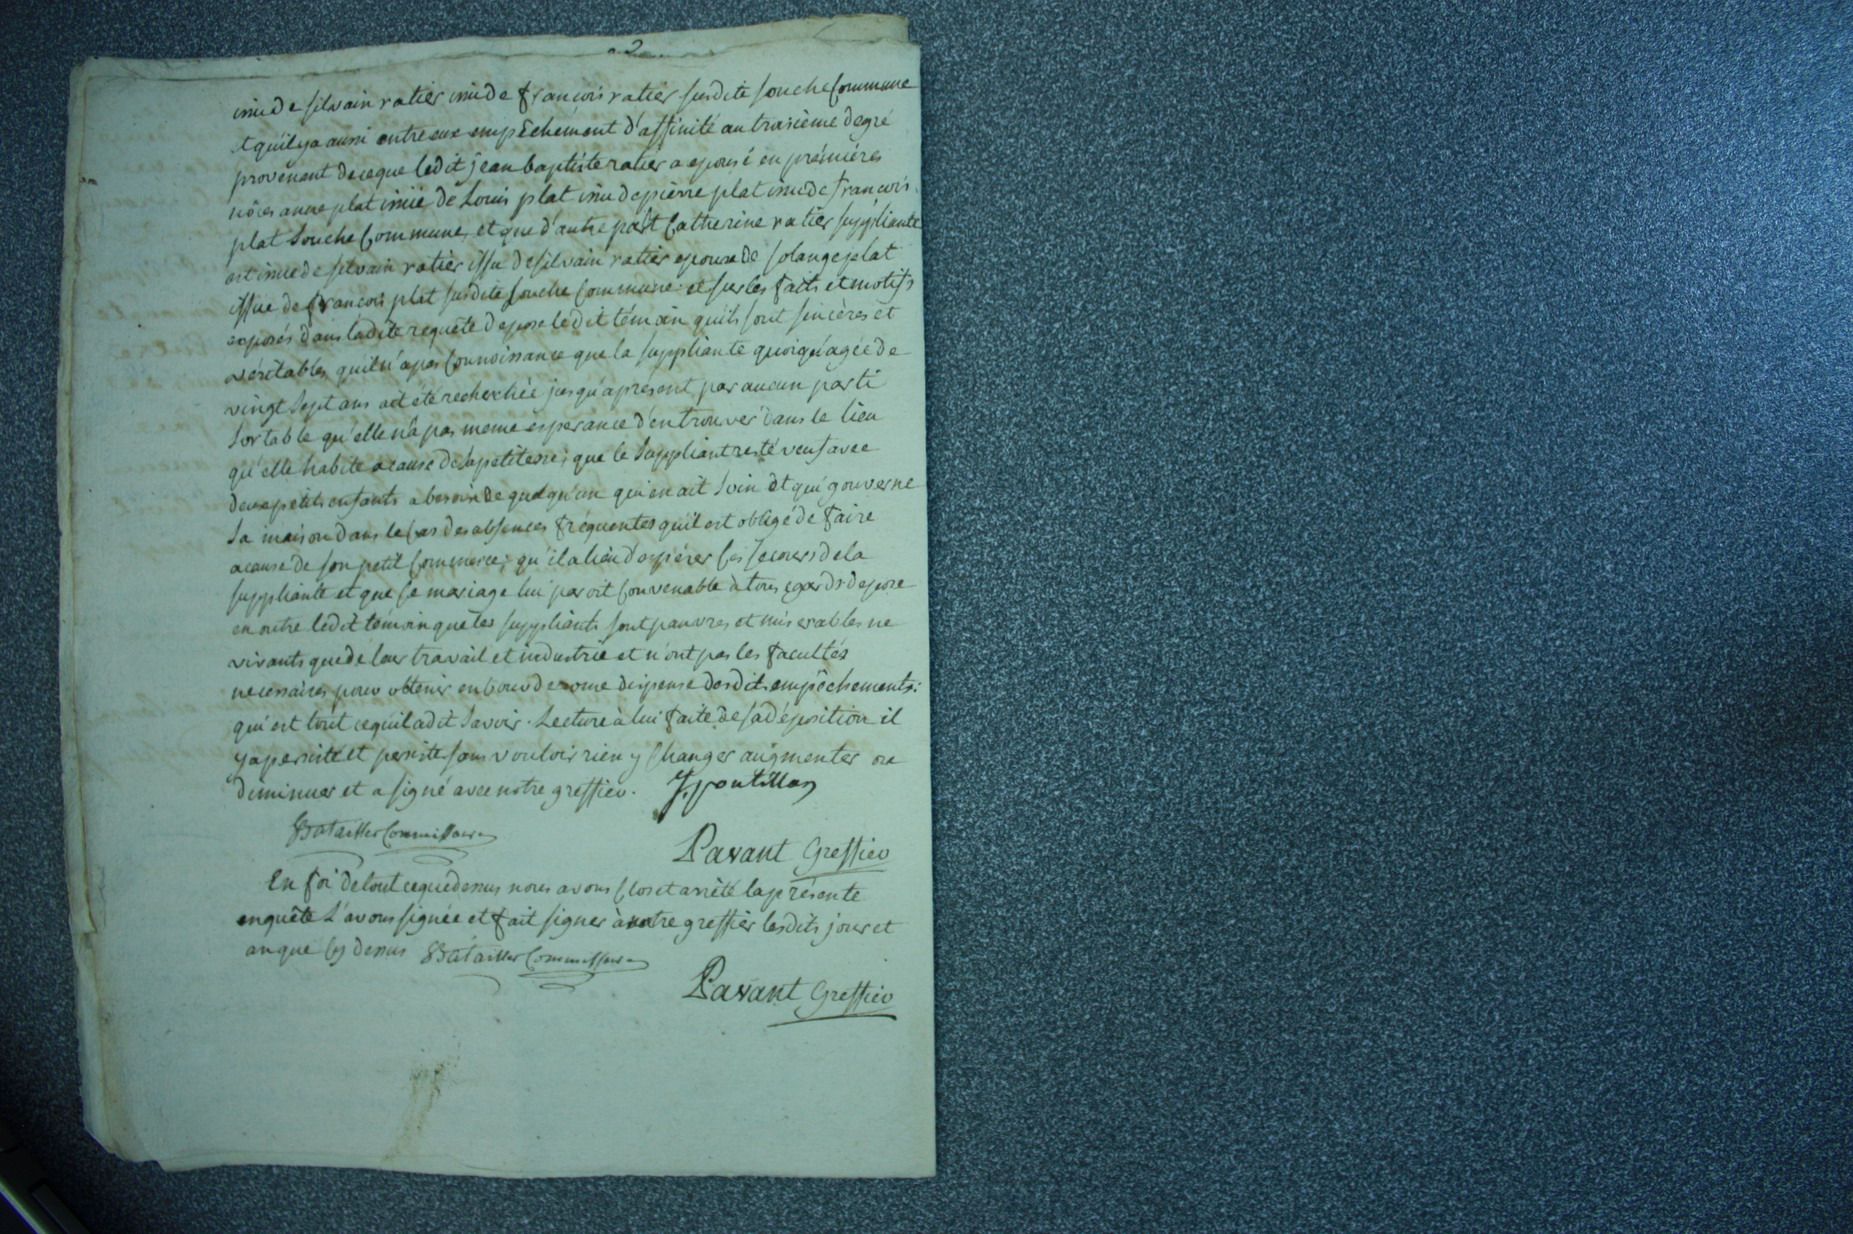 2
issu de silvain ratier issu de françois ratier susdite souche Commune
et quil y a aussi entre eux empêchement d'affinité au troisième degré
provenant de ce que ledit jean baptiste ratier a epousé en premières
nôces anne plat issüe de Louis plat issu de pierre plat issu de françois
plat souche Commune, et que d'autre part Catherine ratier suppliante
est issue de silvain ratier issu de silvain ratier epoux de solange plat
issue de françois plat susdite souche Commune. et sur les faits et motifs
exposés dans ladite requête depose ledit témoin quils sont sincères et
véritables quil n'a pas Connoissance que la suppliante quoiqu'agée de
vingt sept ans ait été recherchée jusqu'apresent par aucun parti
sortable qu'elle n'a pas meme esperance d'en trouver dans le lieu
qu'elle habite a cause de sa petitesse; que le suppliant resté veuf avec
deux petits enfants a besoin de quelqu'un qui en ait soin et qui gouverne
sa maison dans le Cas des absences fréquentes quil est obligé de faire
a cause de son petit Commerce; qu'il a lieu d'espérer Ces secours de la
suppliante et que Ce mariage lui paroit Convenable à tous egards depose
en outre ledit témoin que les suppliants sont pauvres et miserables ne
vivants que de leur travail et industrie et n'ont pas les facultés
necessaires pour obtenir en Cour de rome dispense desdits empêchements:
qui est tout ce quil a dit savoir. Lecture à lui faite de sa déposition il
y a persisté et persiste sans vouloir rien y Changer augmenter ou
diminuer et a signé avec notre greffier. J. pontillon
Batailler Commissaire
Pavant Greffier
En foi de tout ce que dessus nous avons Clos et arrêté la présente
enquête L'avons signée et fait signer à notre greffier lesdits jour et
an que Cy dessus Batailler Commissaire
Pavant Greffier